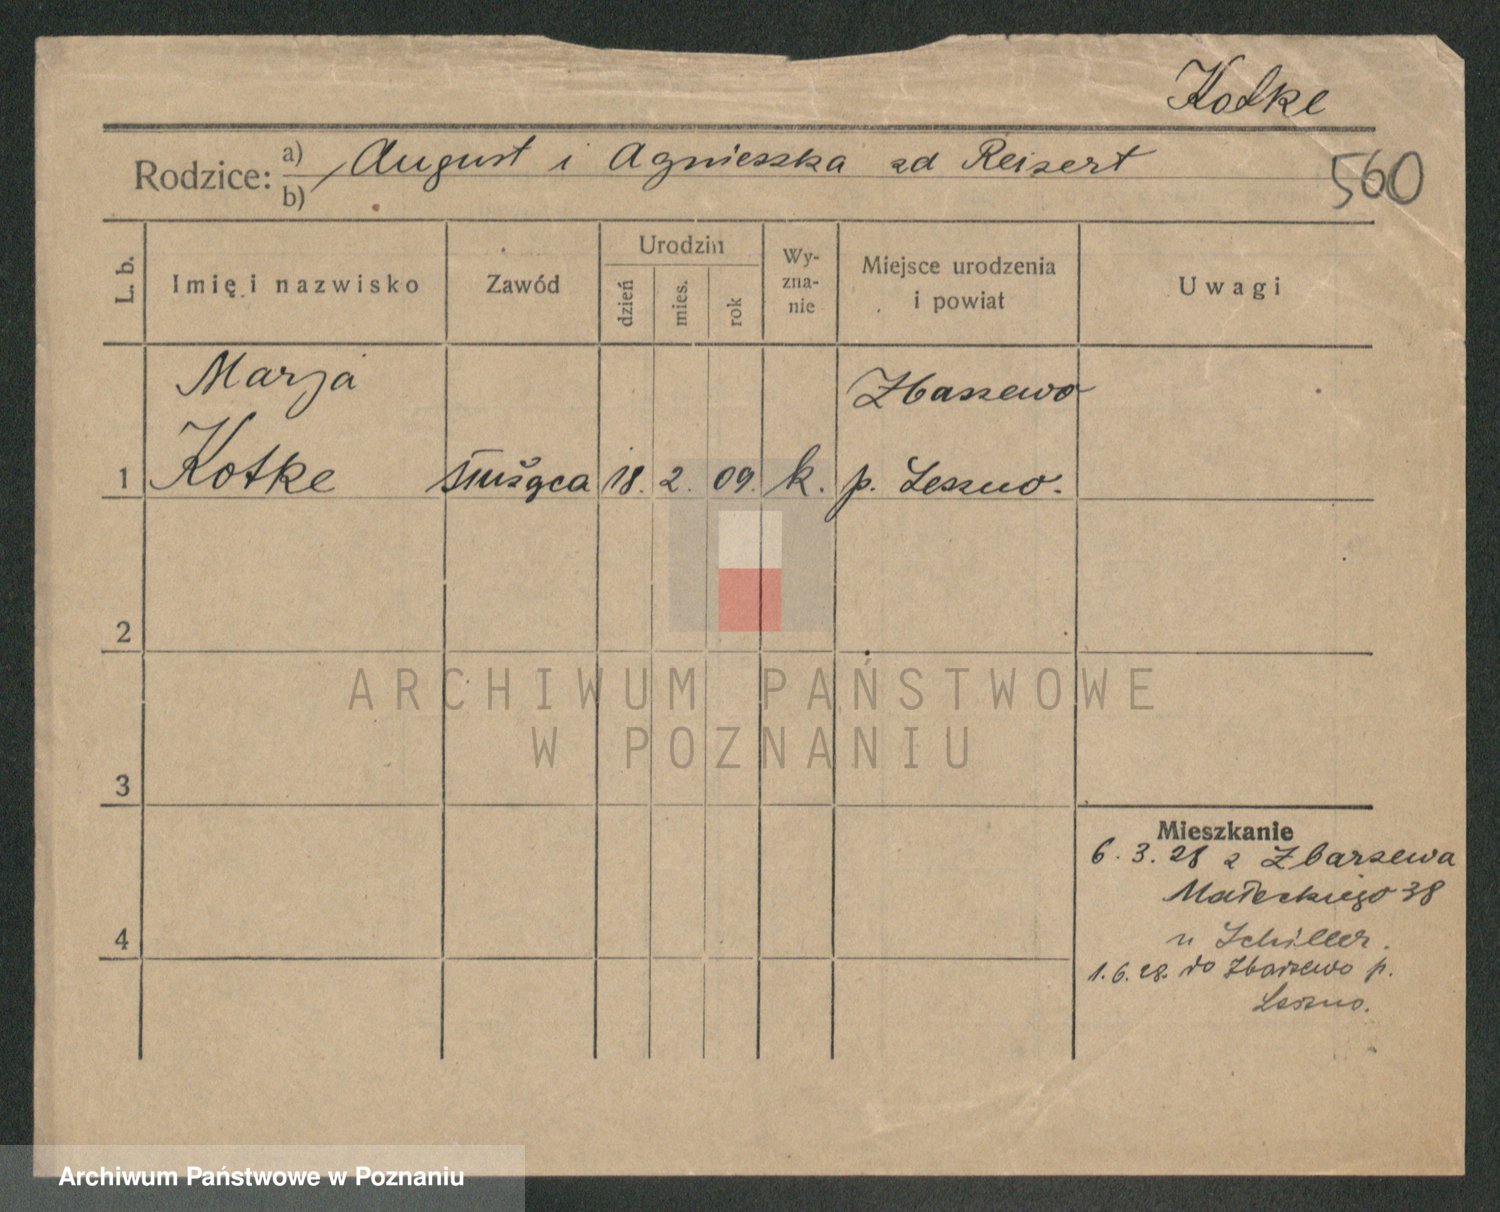 Kotke
Rodzice: a) August i Agnieszka zd Reisert
b)
560
L. b.
Imię i nazwisko
Zawód
Urodzin
dzień
mies.
rok
Wy-
zna-
nie
Miejsce urodzenia
i powiat
Uwagi
Marja
Zbarzewo
1 Kotke służąca 18. 2. 09. k. p. Leszno.
2
ARCHIWUM PAŃSTWOWE
W POZNANIU
3
Mieszkanie
6. 3. 28 z Zbarzewa
Małeckiego 38
u Schiller.
4
1. 6. 28. do Zbarzewo p.
Leszno.
Archiwum Państwowe w Poznaniu